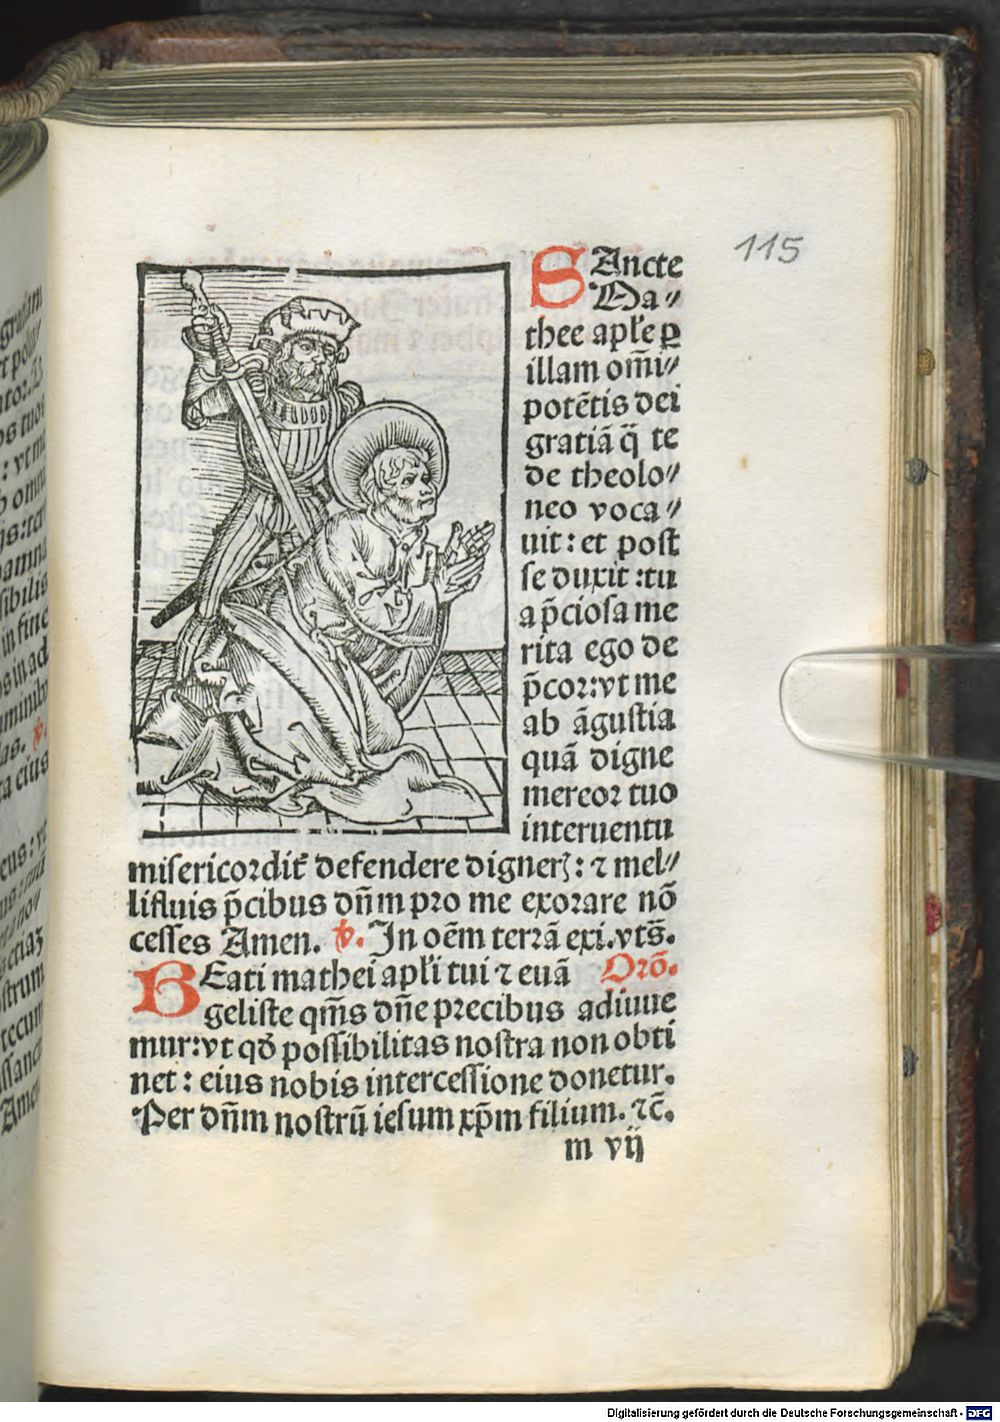 115
SAncte
Ma⸗
thee apl̄e ꝑ
illam om̄i⸗
potētis dei
gratiā q̄ te
de theolo⸗
neo voca⸗
uit: et post
se duxit :tu
a p̄ciosa me
rita ego de
p̄cor:vt me
ab āgustia
quā digne
mereor tuo
interuentu
misericordit̄ defendere digner̄: ⁊ mel⸗
lifluis p̄cibus dn̄m pro me exorare nō
cesses Amen. ꝟ. In oēm terrā exi.vts̄.
BEati mathei apl̄i tui ⁊ euā Orō.
geliste qm̄s dn̄e precibus adiuue
mur:vt qđ possibilitas nostra non obti
net: eius nobis intercessione donetur.
Per dn̄m nostrū iesum xp̄m filium. ⁊c̄.
m vij
Digitalisierung gefördert durch die Deutsche Forschungsgemeinschaft - DFG